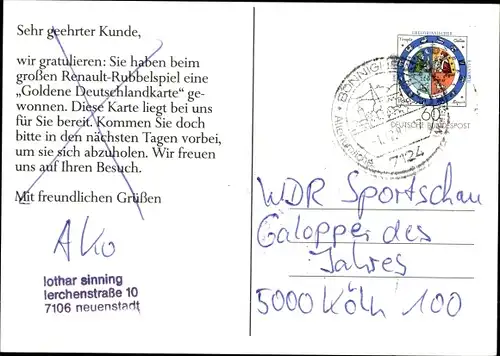 Sehr geehrter Kunde,
wir gratulieren: Sie haben beim
großen Renault-Rubbelspiel eine
„Goldene Deutschlandkarte“ ge-
wonnen. Diese Karte liegt bei uns
für Sie bereit. Kommen Sie doch
bitte in den nächsten Tagen vorbei,
um sie sich abzuholen. Wir freuen
uns auf Ihren Besuch.
Mit freundlichen Grüßen
AKO
lothar sinning
lerchenstraße 10
7106 neuenstadt
60
DEUTSCHE BUNDESPOST
7124
WDR Sportschau
Galopper des
Jahres
5000 Köln 100